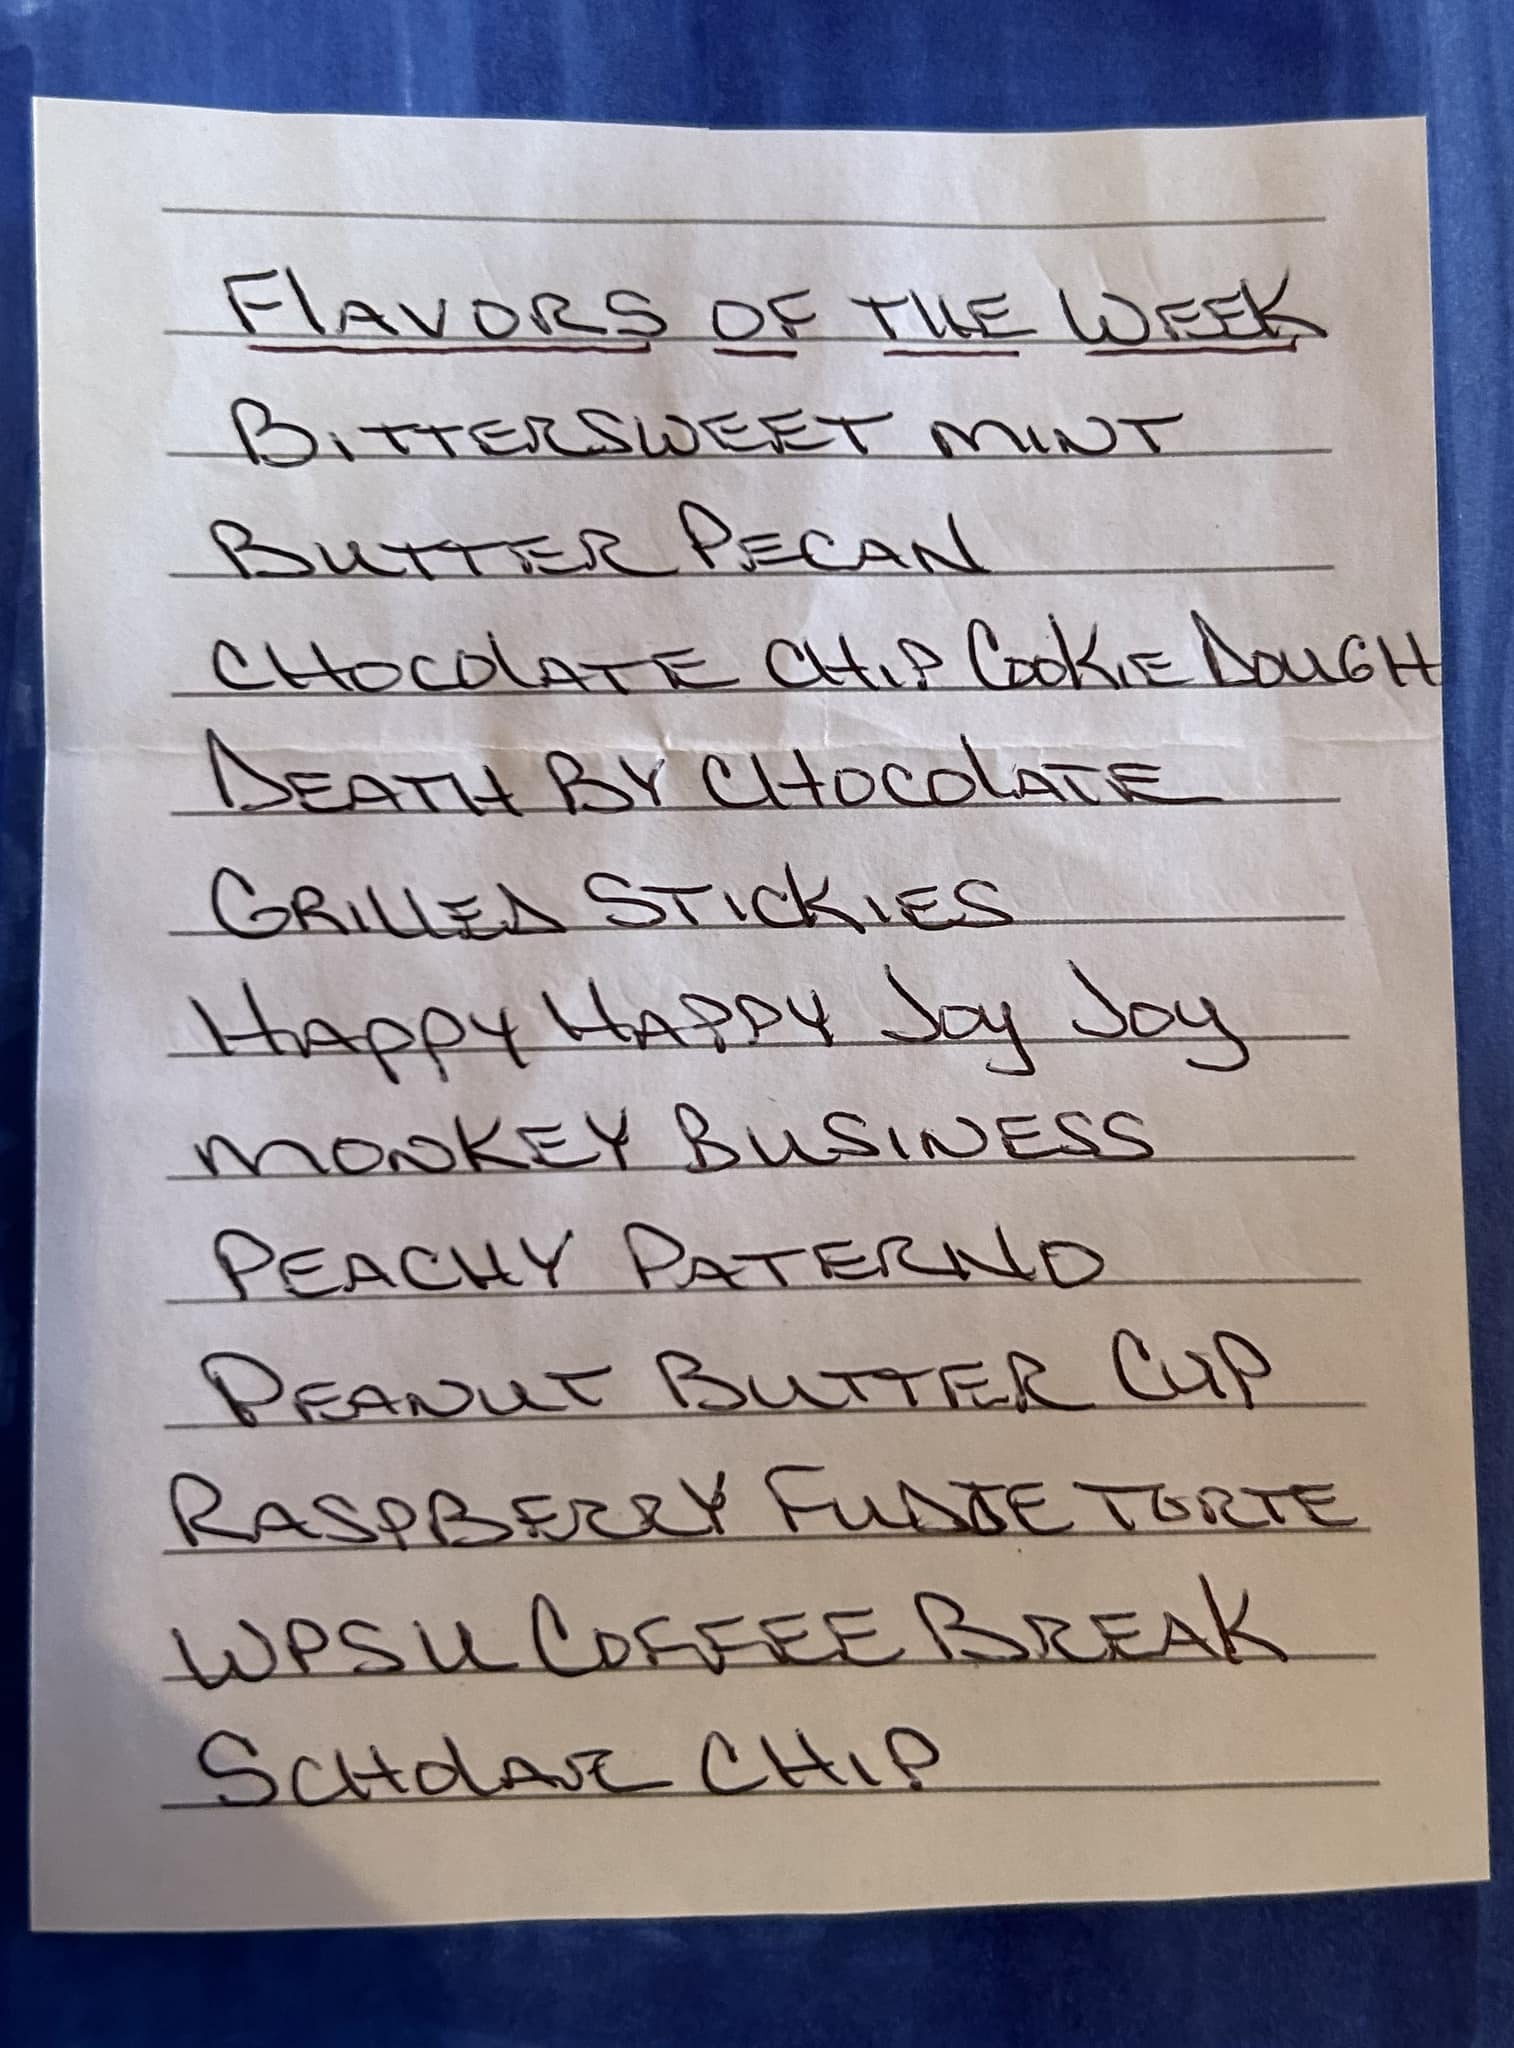 FlAVORS OF THE WEEK
BiTTERSWEET MINT
BUTTER PECAN
CHOCOlATE CHiP COOKIE DOUGH
DEATH BY CHOCOlATE
GRILLED STICKIES
HAPPY HAPPY Joy Joy
MONKEY BUSINESS
PEACHY PATERNO
PEANUT BUTTER CUP
RASPBERRY FUDGE TORTE
WPSU COFFEE BREAK
SCHOlAR CHIP